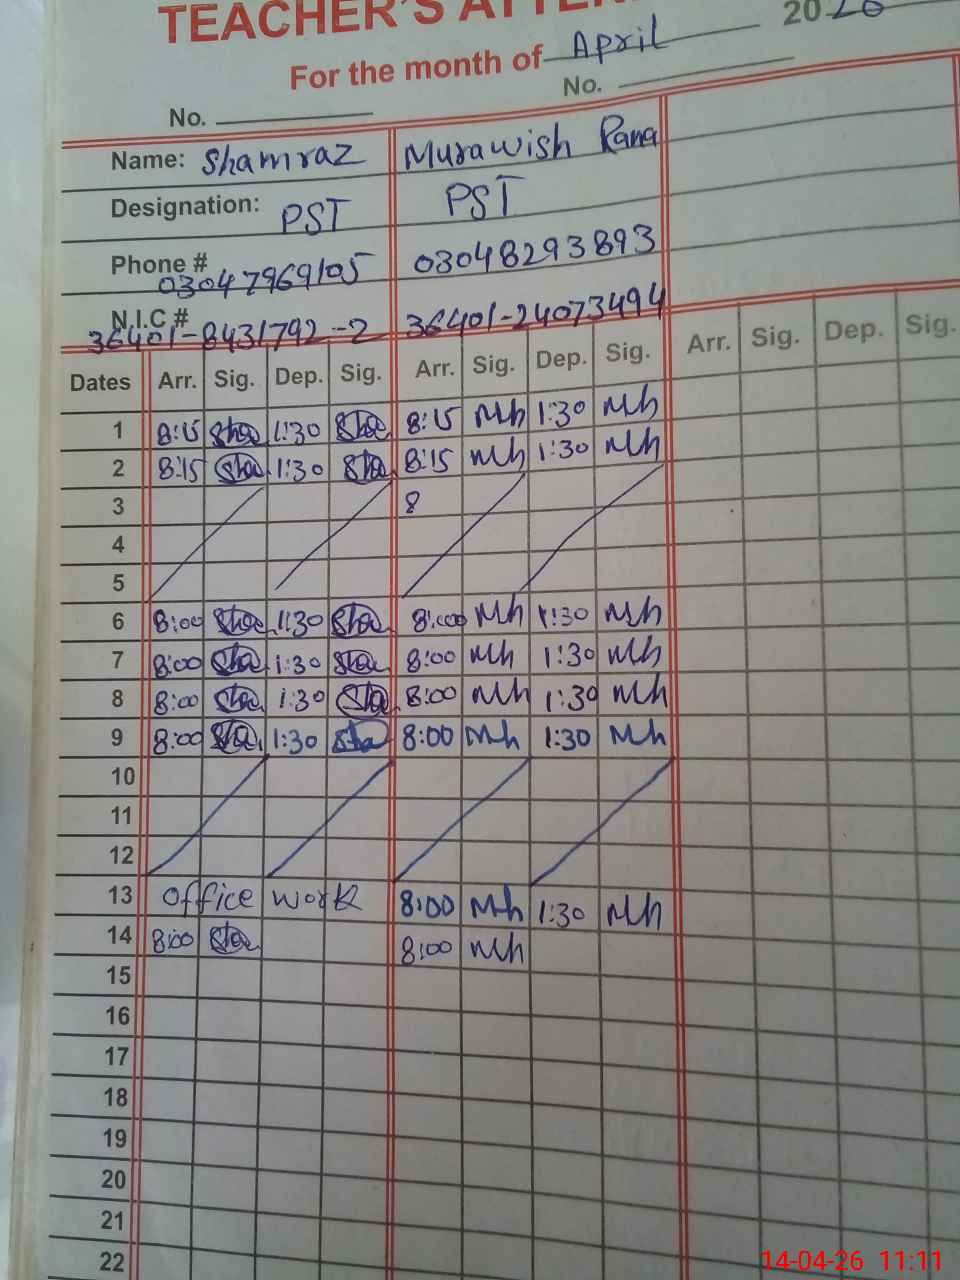 TEACHER'S ATTEN
For the month of April 2026
No. No.
Name: Shamraz Murawish Rana
Designation: PST PST
Phone # 03047969105 03048293893
N.I.C # 36401-8431792-2 36401-24073494
Dates Arr. Sig. Dep. Sig. Arr. Sig. Dep. Sig. Arr. Sig. Dep. Sig.
1 8:15 Sha 1:30 Sha 8:15 Mh 1:30 Mh
2 8:15 Sha 1:30 Sha 8:15 Mh 1:30 Mh
3 8
4
5
6 8:00 Sha 1:30 Sha 8:00 Mh 1:30 Mh
7 8:00 Sha 1:30 Sha 8:00 Mh 1:30 Mh
8 8:00 Sha 1:30 Sha 8:00 Mh 1:30 Mh
9 8:00 Sha 1:30 Sha 8:00 Mh 1:30 Mh
10
11
12
13 office work 8:00 Mh 1:30 Mh
14 8:00 Sha 8:00 Mh
15
16
17
18
19
20
21
22
14-04-26 11:11